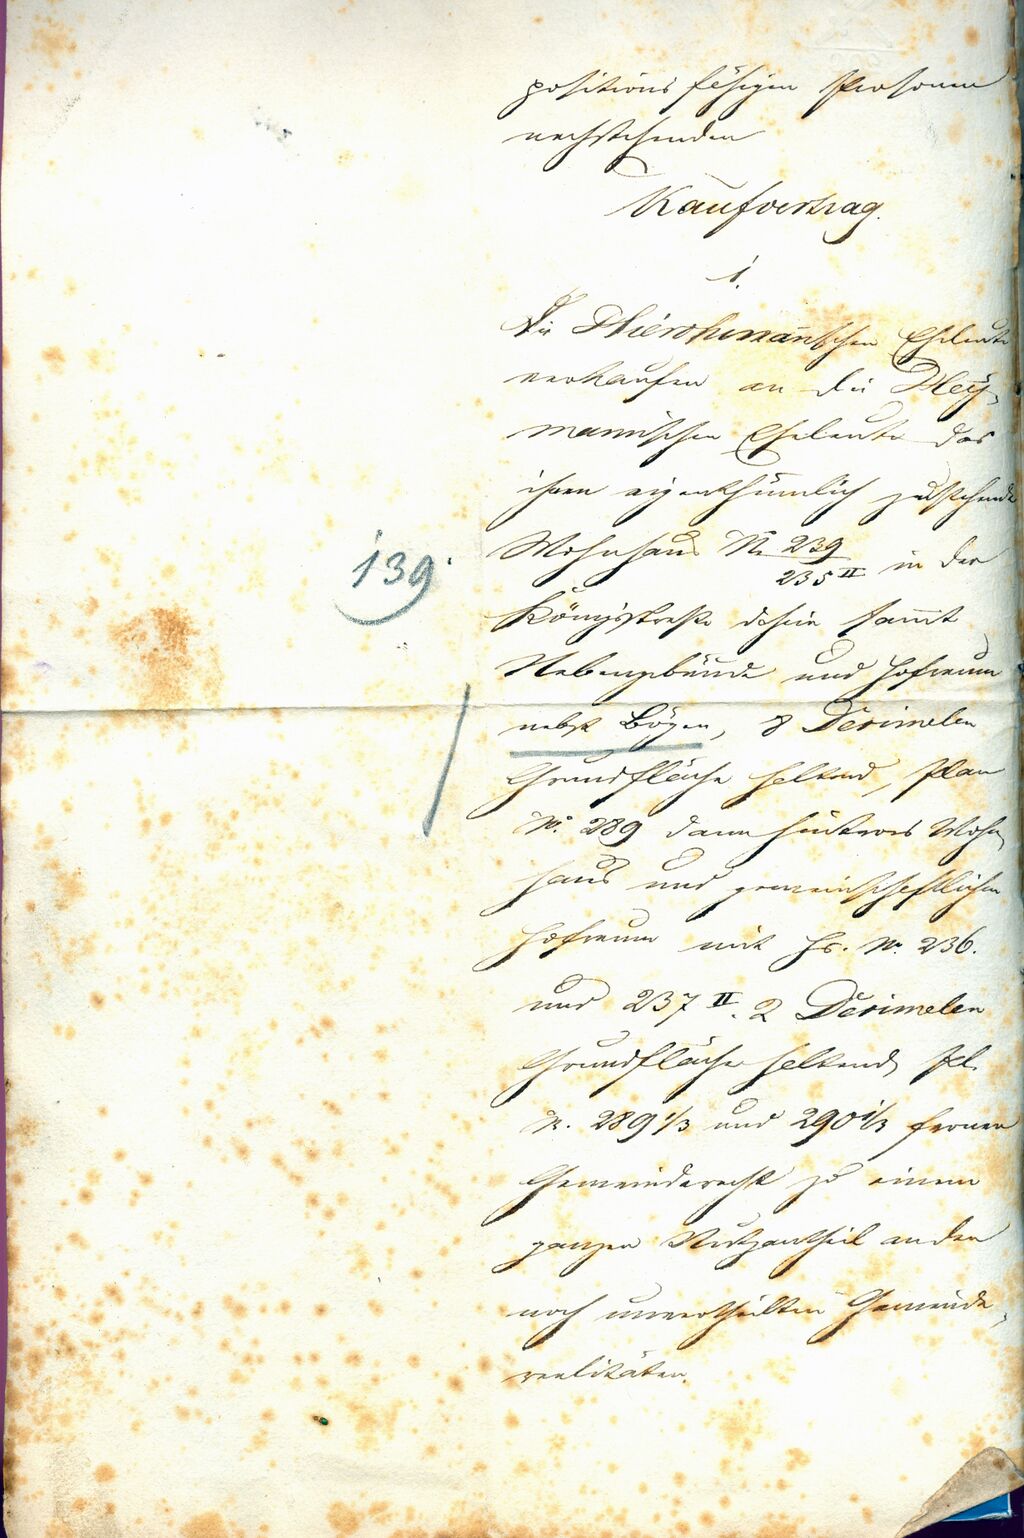 positionsfähigen Personen
nachstehenden
Kaufvertrag.
1.
Die Hierohmannschen Eheleute
verkaufen an die Hey-
mannischen Eheleute das
ihnen eigenthümlich zustehende
Wohnhaus No 239/235 II in der
Königsstraße dahier sammt
Nebengebäude und Hofraum
139.
nebst Bögen, 8 Dezimalen
Grundfläche haltend, Plan
No. 289 dann hinteres Wohn-
haus und gemeinschaftlichen
Hofraum mit Hs. No 236.
und 237 II. 2 Dezimalen
Grundfläche haltend, Pl.
N. 289 1/3 und 290 1/3 ferner
Gemeinderecht zu einem
ganzen Nutzantheil an den
noch unvertheilten Gemeinde-
realitäten.